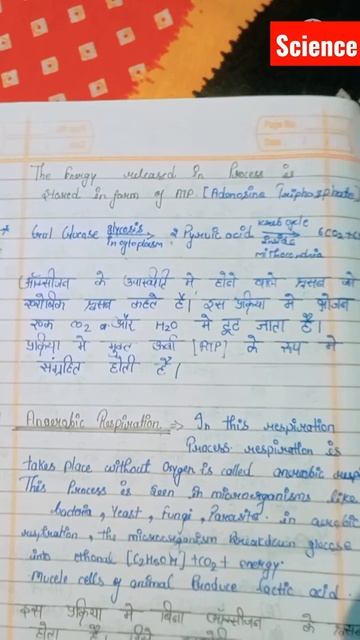 Science
Page No.
Date
The Energy released In Process is
stored in form of ATP [Adonosine Triphosphate]
Oral Glucose glycosis In cytoplasm 2 Pyruvic acid kreb cycle inside mithocondria 6CO2 +
(ऑक्सीजन के उपस्थिति में होने वाले श्वसन को
कहते हैं। इस प्रक्रिया में भोजन
CO2 और H2O में टूट जाता है।
प्रक्रिया में मुक्त ऊर्जा [ATP] के रूप में
संग्रहित होती है।
Anaerobic Respiration ⇒ In this respiration
Process respiration is
takes place without oxygen is called
This Process is Seen In microorganisms like
bacteria, Yeast, Fungi, Parasite. in
respiration, the microorganism Breakdown glucose
into ethonal [C2H5OH] + CO2 + energy.
Mucle cells of animal Produce lactic acid.
इस प्रक्रिया में बिना ऑक्सीजन के
होता है।